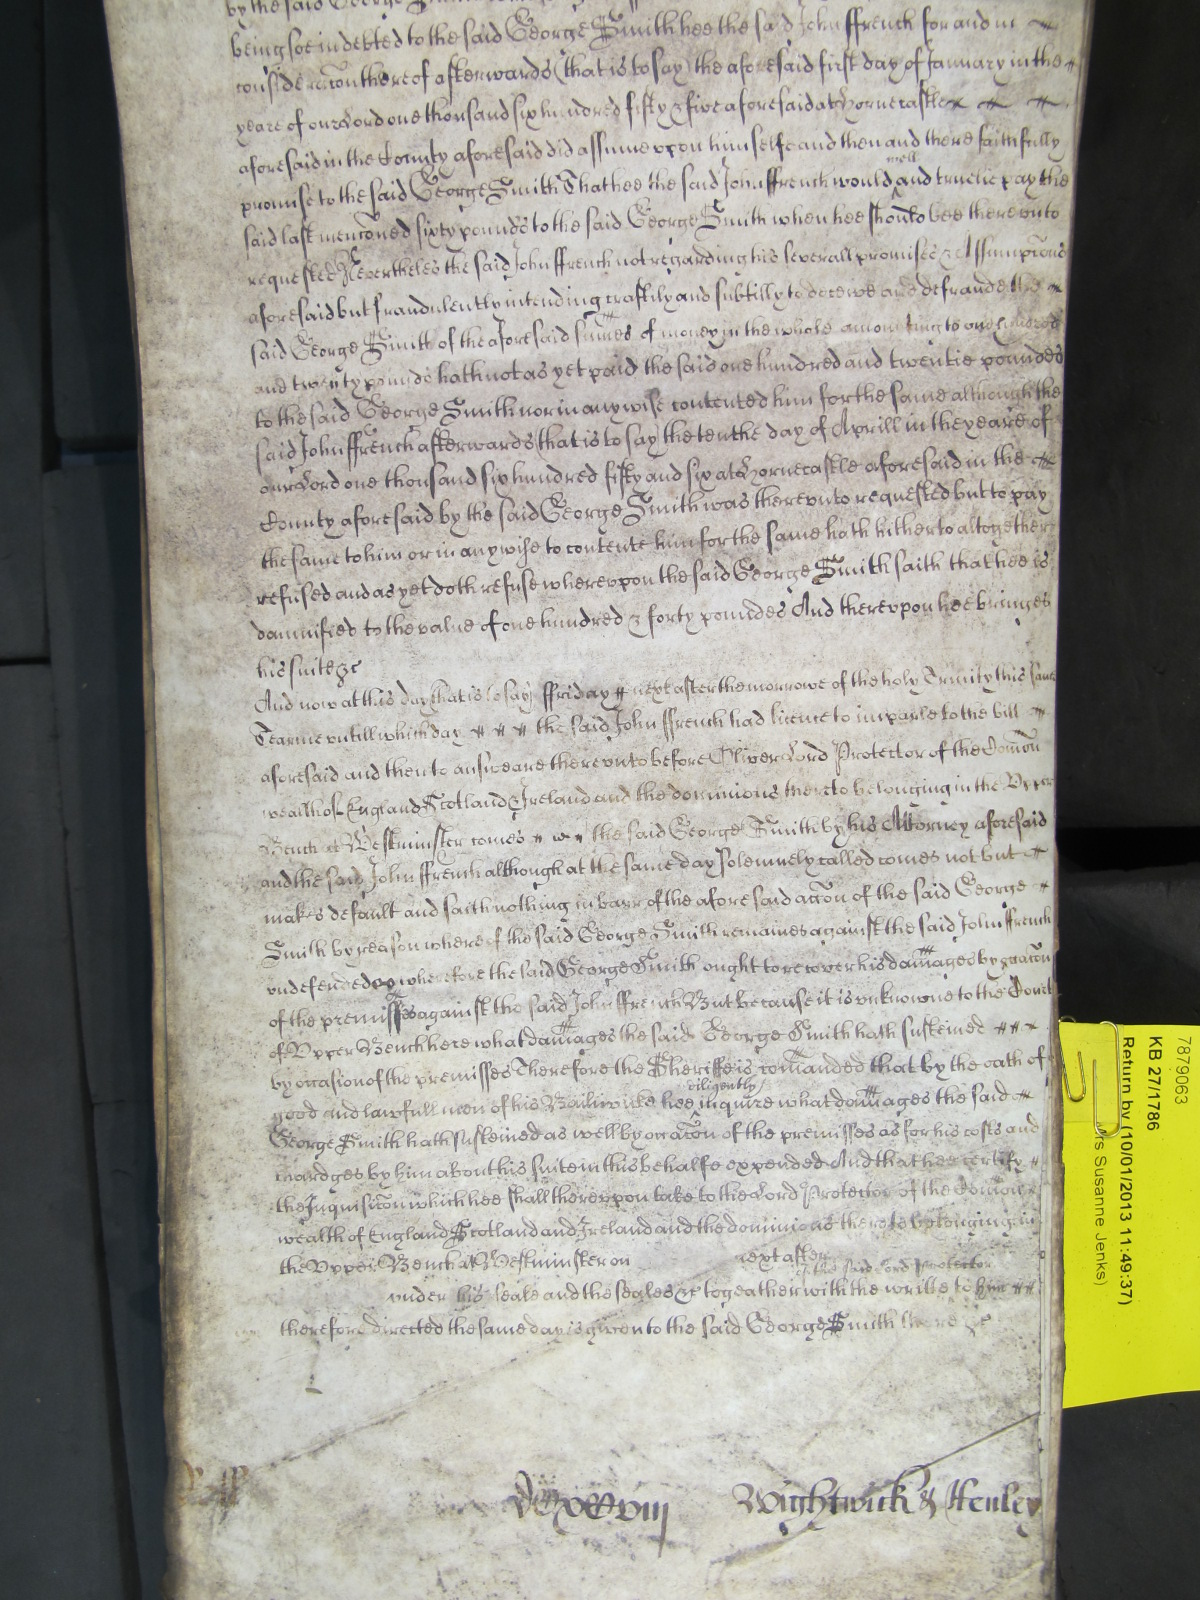 by the said George
being soe indebted to the said George Smith hee the said John ffrench for and in
consideracon thereof afterwards (that is to say) the aforesaid first day of January in the
yeare of our Lord one thousand six hundred fifty & five aforesaid at Hornecastle
aforesaid in the County aforesaid did assume vpon himselfe and then and there faithfully
promise to the said George Smith That hee the said John ffrench would well and truelie pay the
said last menconed sixty pounds to the said George Smith when hee should bee therevnto
requested Neverthelesse the said John ffrench not regarding his severall promises & Assumpcons
aforesaid but fraudulently intending craftily and subtilly to deceive and defraude the
said George Smith of the aforesaid summes of money in the whole amounting to one hundred
and twenty pounds hath not as yet paid the said one hundred and twentie poundes
to the said George Smith nor in any wise contented him for the same although the
said John ffrench afterwards (that is to say) the tenthe day of Aprill in the yeare of
our Lord one thousand six hundred fifty and six at Hornecastle aforesaid in the
County aforesaid by the said George Smith was therevnto requested but to pay
the same to him or in any wise to contente him for the same hath hitherto altogether
refused and as yet doth refuse wherevpon the said George Smith saith that hee is
damnified to the value of one hundred & forty poundes And therevpon hee bringes
his suite &c
And now at this day that is to say ffriday next after the morrowe of the holy Trinity this same
Tearme vntill which day the said John ffrench had licence to imparle to the bill
aforesaid and then to answeare therevnto before Oliver Lord Protector of the Comon
wealth of England Scotland & Ireland and the dominions thereto belonging in the Vpper
Bench at Westminster comes the said George Smith by his Attorney aforesaid
and the said John ffrench although at the same day solemnely called comes not but
makes default and saith nothing in barr of the aforesaid accon of the said George
Smith by reason whereof the said George Smith remaines against the said John ffrench
vndefended wherefore the said George Smith ought to recover his damages by occacon
of the premisses against the said John ffrench But because it is vnknowne to the Court
of Vpper Bench here what damages the said George Smith hath susteined
by occasion of the premisses Therefore the Sheriffe is comanded that by the oath of
good and lawfull men of his Bailiwicke hee diligently inquire what damages the said
George Smith hath susteined as well by occacon of the premisses as for his costs and
chardges by him about his suite in this behalfe expended And that hee certify
the Inquisicon which hee shall therevpon take to the Lord Protector of the Comon
wealth of England Scotland and Ireland and the dominions thereto belonging in
the Vpper Bench at Westminster on next after
of the said Lord Protector
under his seale and the seales &c togeather with the writte to him
therefore directed the same day is given to the said George Smith there &c
Wightwick & Henley
7879063
KB 27/1786
Return by (10/01/2013 11:49:37)
rs Susanne Jenks)